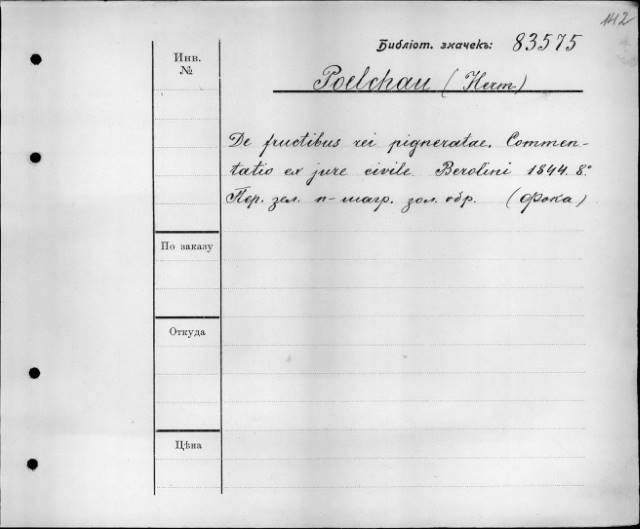 142
Библіот. значекъ: 83575
Инв.
№
Poelchau (Herm)
De fructibus rei pigneratae. Commen-
tatio ex jure civile. Berolini 1844. 8.°
Пер. зел. п-шагр. зол. обр. (Фока)
По заказу
Откуда
Цѣна